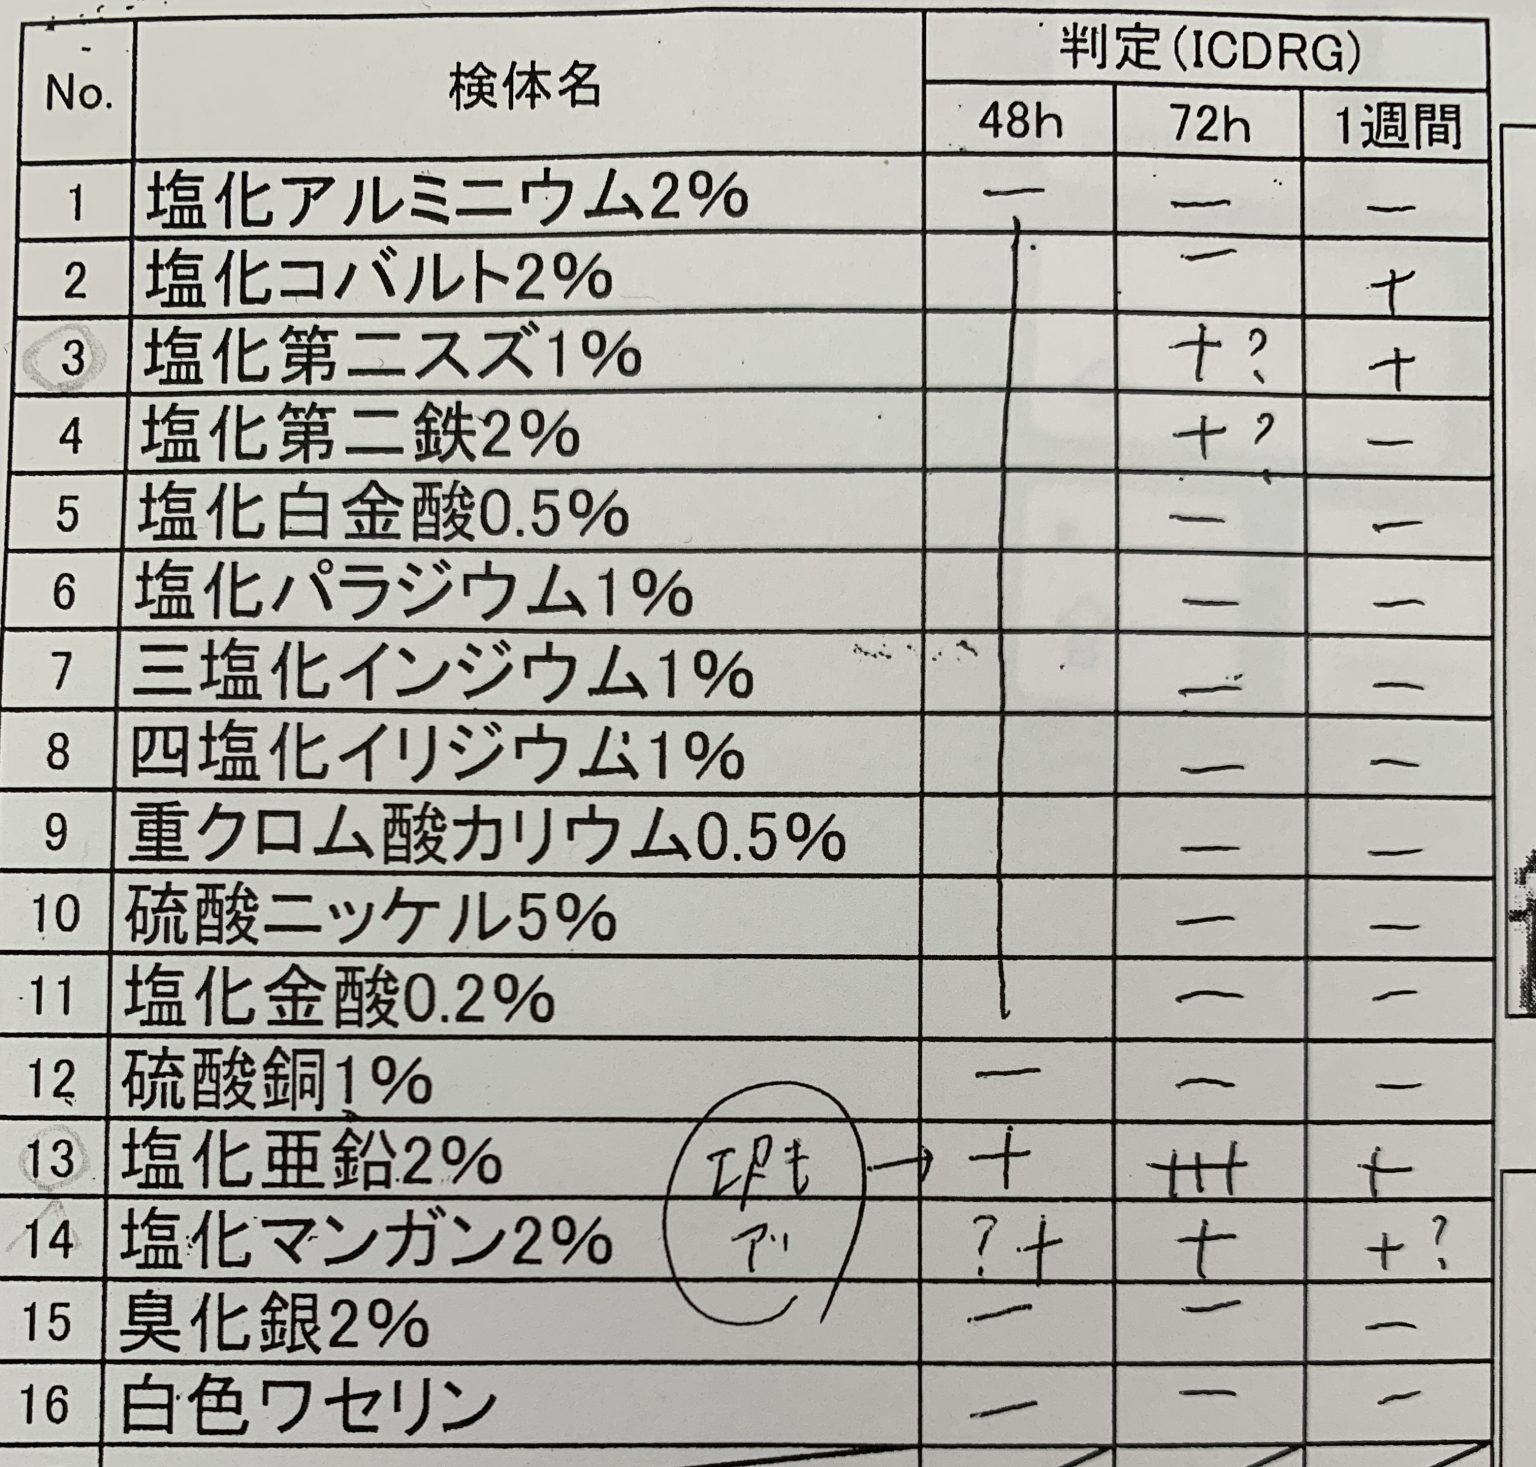 No. 検体名 判定(ICDRG)
48h 72h 1週間
1 塩化アルミニウム2% − − −
2 塩化コバルト2% − +
3 塩化第二スズ1% +? +
4 塩化第二鉄2% +? −
5 塩化白金酸0.5% − −
6 塩化パラジウム1% − −
7 三塩化インジウム1% − −
8 四塩化イリジウム1% − −
9 重クロム酸カリウム0.5% − −
10 硫酸ニッケル5% − −
11 塩化金酸0.2% − −
12 硫酸銅1% − − −
13 塩化亜鉛2% → + +++ +
14 塩化マンガン2% ?+ + +?
15 臭化銀2% − − −
16 白色ワセリン − − −